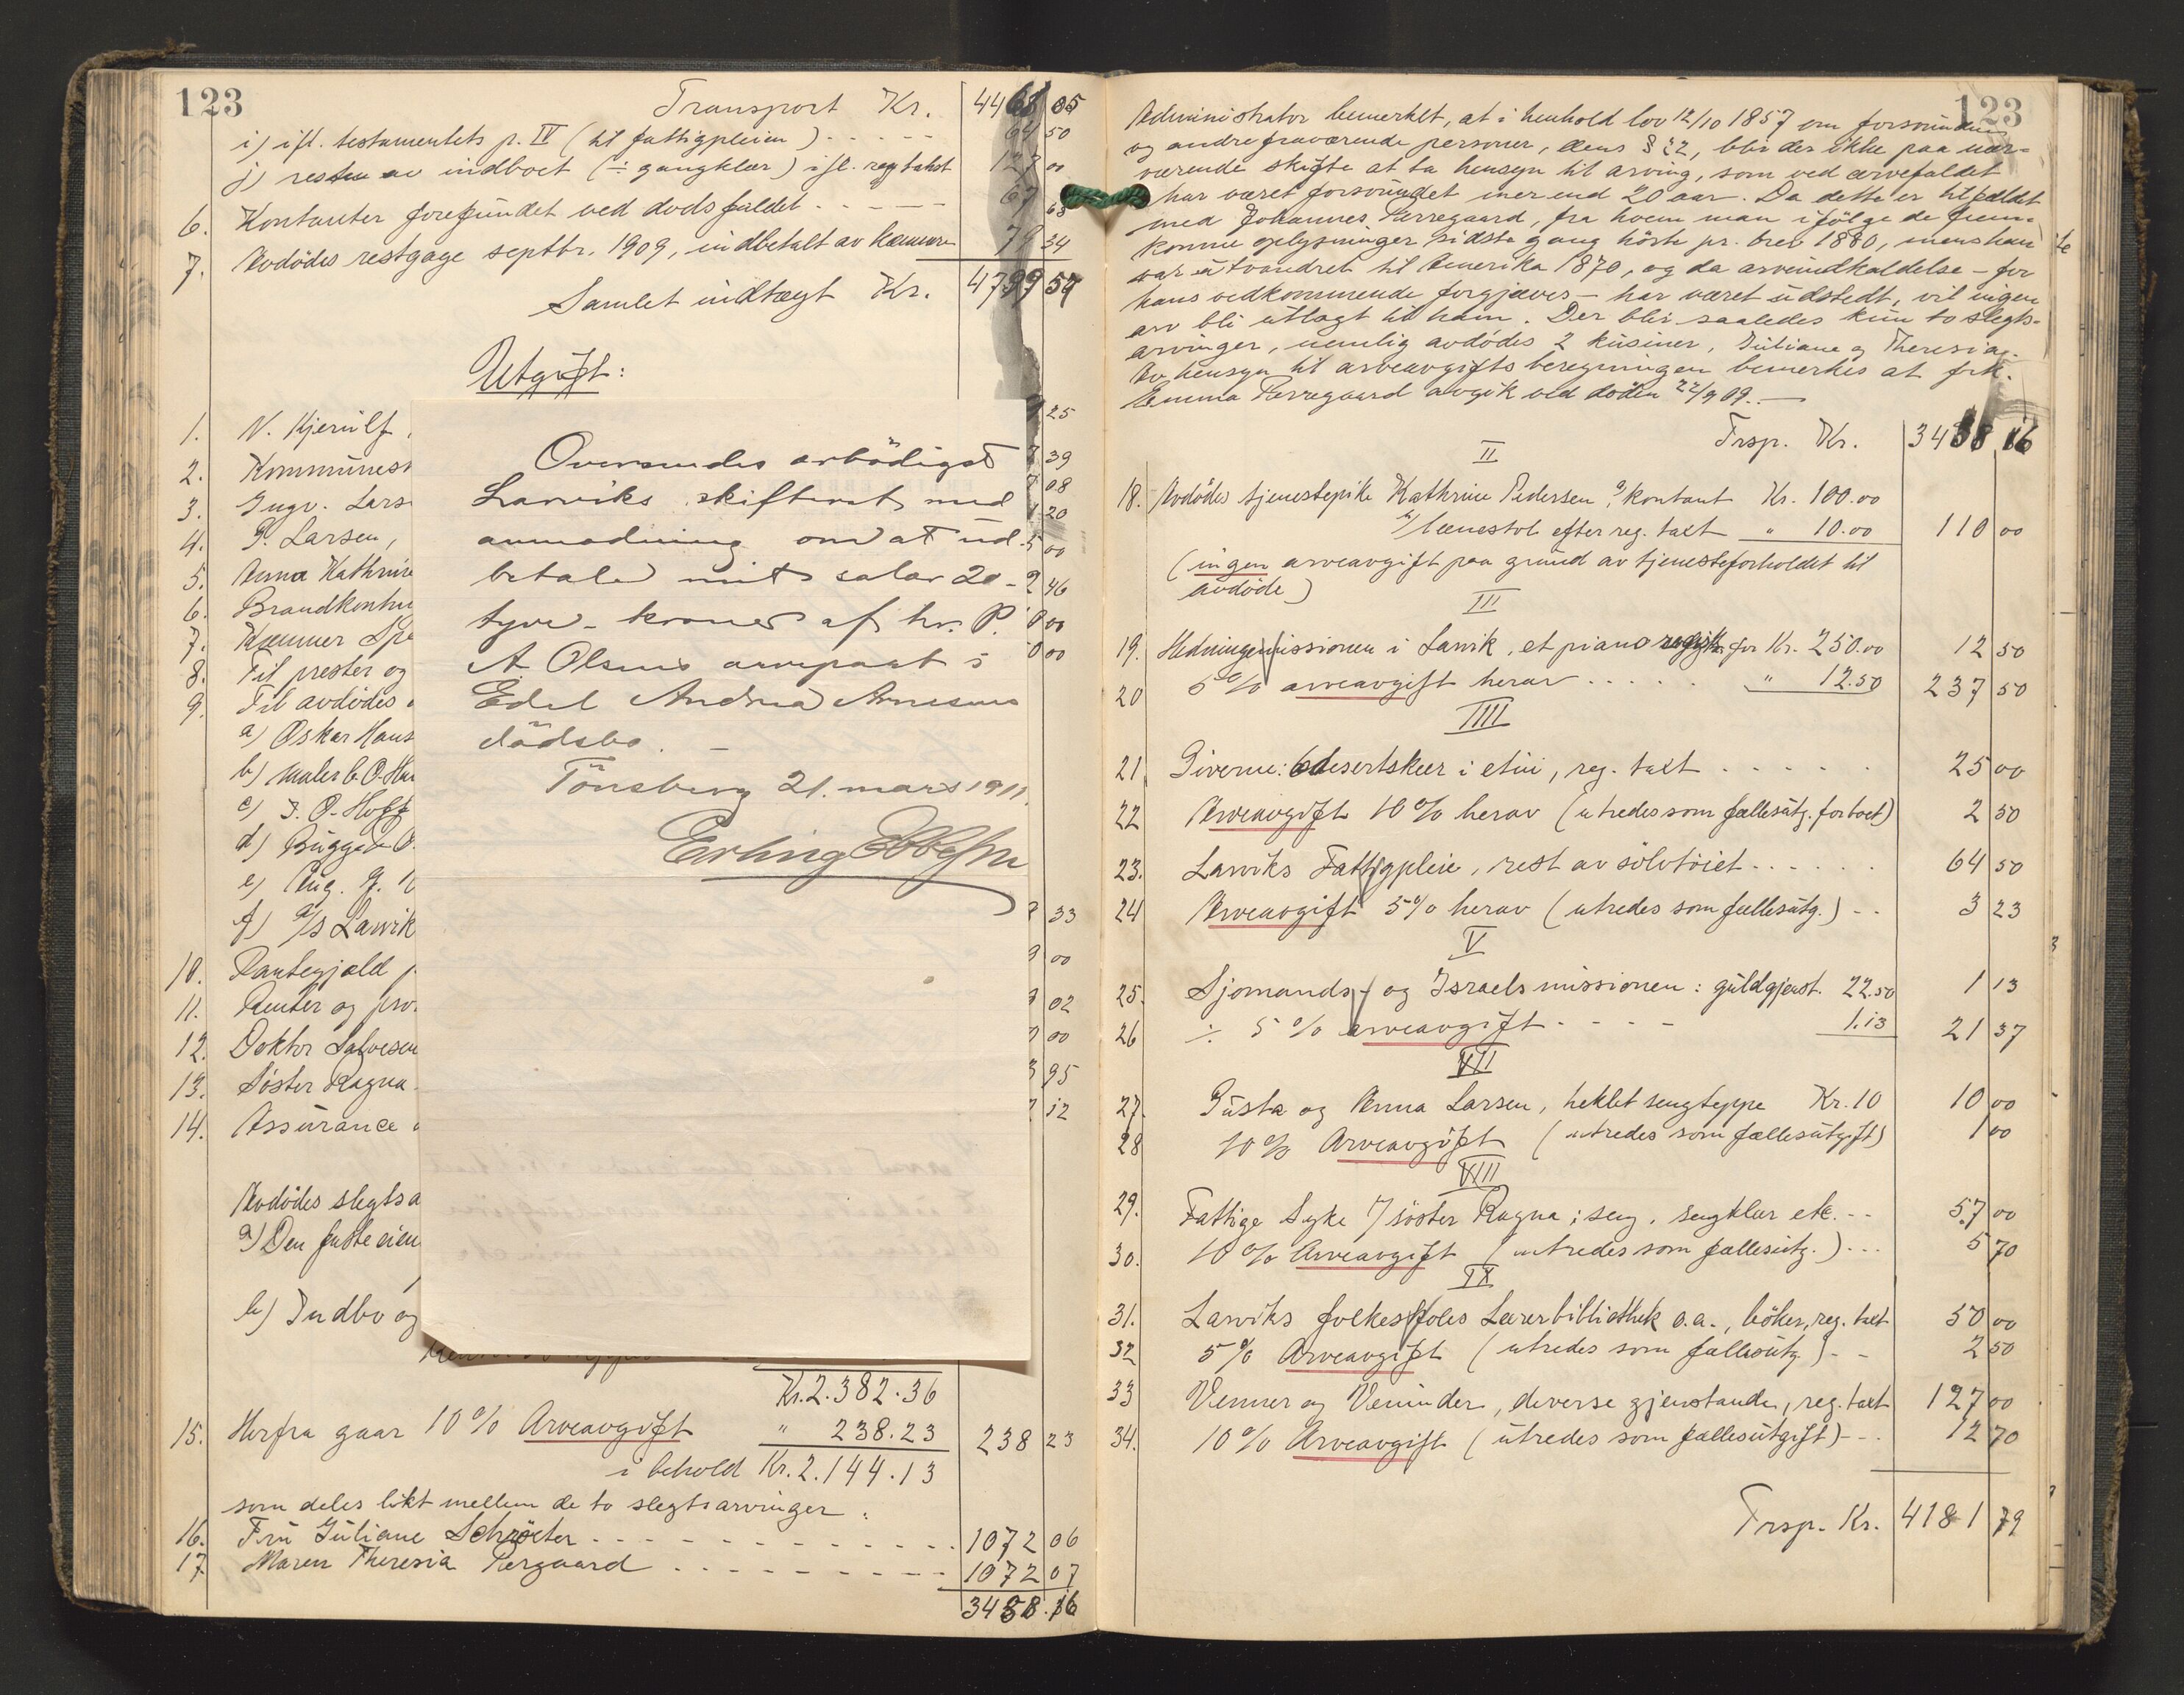 123
Transport Kr. 4468 05
i) ifl. testamentets p. IV (til fattigpleien) - - - 64 50
j) resten av indboet (÷ gangklær) ifl. reg takst 127 00
6. Kontanter forefundet ved dødsfaldet - - - - 67 68
7. Avdødes restgage septbr. 1909, indbetalt av Kæmner 79 34
Samlet indtægt Kr. 4799 57
Utgift:
1. N. Kjerulf 25
2. Kommunes 39
3. Ingv. Lars 08
4. P. Larsen, 20
5. Anna Kathrine 00
6. Brandkontin 46
7. Kæmner Spe 00
8. Til prester og 00
9. Til avdødes
a) Oskar Hans
b) Maler C. O. Han
c) J. O. Hoff
d) Bügge O.
e) Aug. J.
f) A/S Larvik 33
10. Pantegjæld p 00
11. Renter og pro. 02
12. Doktor Salvesen 00
13. Søster Ragna 95
14. Assürance 12
Avdødes slegtsa
a) Den faste eien
b) Indbo og
Oversendes ærbødigst
Larviks skifteret med
anmodning om at ud-
betale mit salær 20 -
tyve - kroner af hr. P.
A. Olsens arvepart i
Edel Andrea Arnesens
dødsbo. -
Tönsberg 21. mars 1911.
Erling Ebbesen
Kr. 2.382.36
15. Herfra gaar 10% Arveavgift " 238.23 238 23
i behold Kr. 2.144.13
som deles likt mellem de to slegtsarvinger:
16. Frü Jüliane Schrøeter - - - - - 1072 06
17. Maren Theresia Pergaard - - - - - 1072 07
3458.16
123
Administrator bemerket, at i henhold lov 12/10 1857 om forsvundne
og andre fraværende personer, dens § 22, blir der ikke paa nær-
værende skifte at ta hensyn til arving, som ved arvefaldet
har været forsvundet mer end 20 aar. Da dette er tilfældet
med Johannes Perregaard, fra hvem man ifölge de frem-
komne oplysninger sidste gang hörte pr. brev 1880, mens han
var utvandret til Amerika 1870, og da arveindkaldelse - for
hans vedkommende forgjæves - har været üdstedt, vil ingen
arv bli utlagt til ham. Der blir saaledes kun to slegts-
arvinger, nemlig avdödes 2 küsiner, Jüliane og Theresia.
Av hensyn til arveavgiftsberegningen bemerkes at frk.
Emma Perregaard avgik ved döden 22/9 09. -
Trsp. Kr. 3458 16
II
18. Avdödes tjenestepike Kathrine Pedersen, a/ kontant Kr. 100.00
b/ lænestol efter reg. taxt " 10.00 110 00
(ingen arveavgift paa grund av tjenesteforholdet til
avdöde)
III
19. Hedningemissionen i Larvik, et piano for Kr. 250.00 12 50
20 5% arveavgift herav - - - - " 12.50 237 50
IIII
21. Giverne: 6 desertskeer i etüi, reg. taxt - - - - - 25 00
22 Arveavgift 10% herav (utredes som fællesütg. for boet) 2 50
23. Larviks Fattigpleie, rest av sölvtöiet - - - - - 64 50
24 Arveavgift 5% herav (utredes som fællesütg.) - - 3 23
V
25. Sjømands- og Israelsmissionen: güldgjenst. 22.50 1 13
26 ÷ 5% arveavgift - - - - 1.13 21 37
VII
27. Güsta og Anna Larsen, heklet sengteppe Kr. 10 10 00
28 10% Arveavgift (utredes som fællesütgift) 1 00
VIII
29. Fattige Syke / söster Ragna; seng, sengklær etc. - - 57 00
30. 10% Arveavgift (utredes som fællesütg.) - - - 5 70
IX
31. Larviks folkeskoles Lærerbibliothek o.a., böker, reg. taxt 50 00
32 5% Arveavgift (utredes som fællesütg.) - - 2 50
33 Venner og Veninder, diverse gjenstande, reg. taxt 127 00
34. 10% Arveavgift (ütredes som fællesütgift) - - 12 70
Trsp. Kr. 4181 79